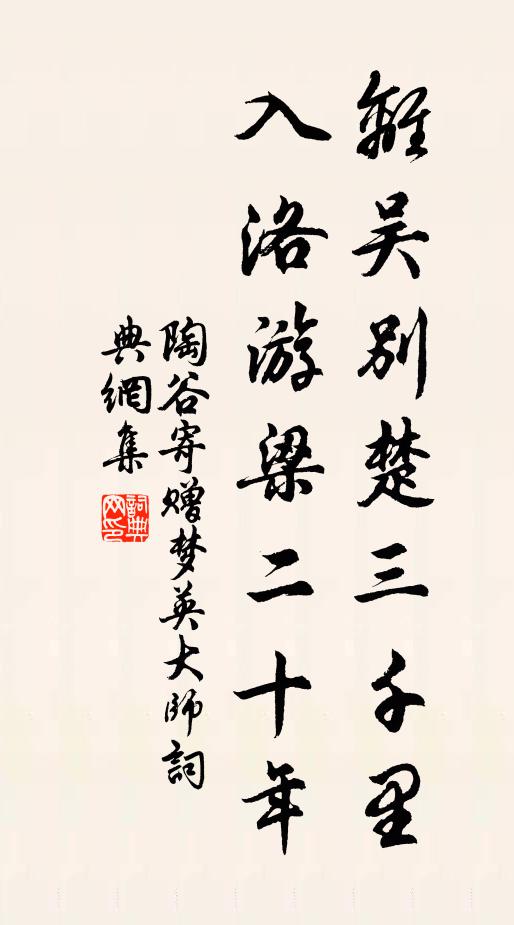 離吴别楚三千里
入洛游梁二十年
陶谷寄赠梦英大师詞
典網集
詞典网印